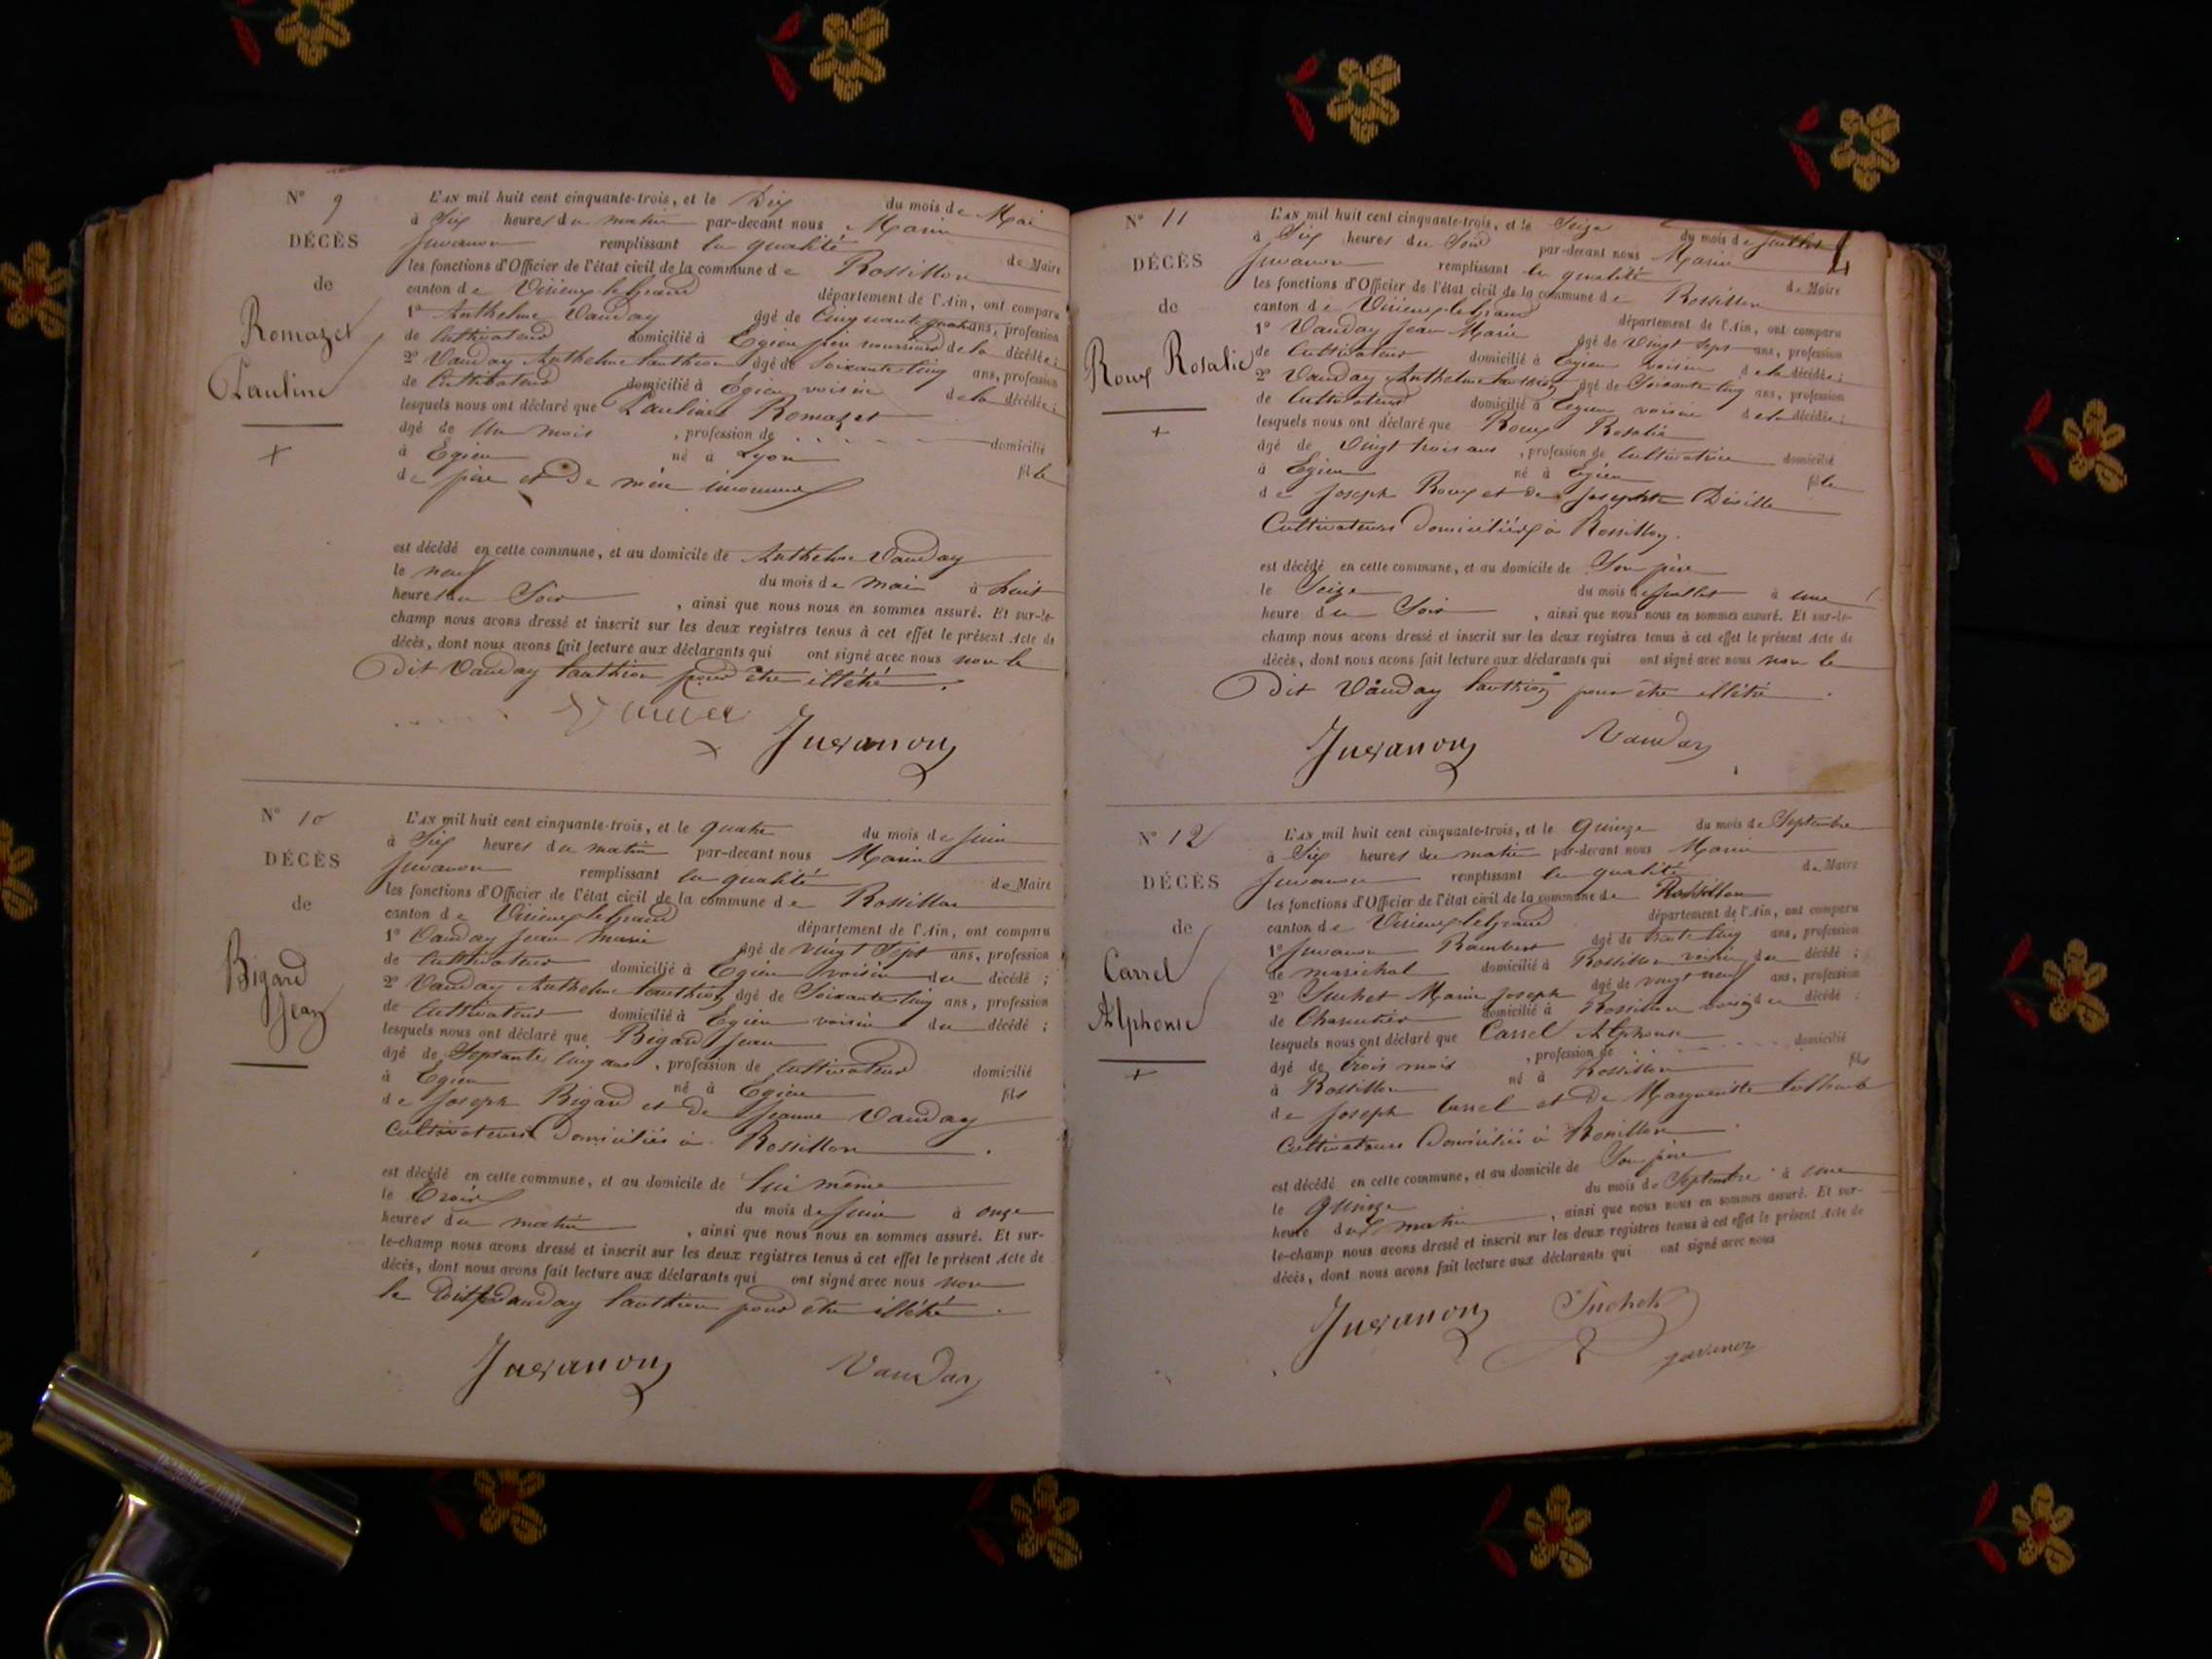 N° 9
DÉCÈS
de
Romazet
Pauline
L'AN mil huit cent cinquante-trois, et le Dix du mois de Mai
à Six heures du matin par-devant nous Marin
Juvanon remplissant la qualité de Maire
les fonctions d'Officier de l'état civil de la commune de Rossillon
canton de Virieux le Grand département de l'Ain, ont comparu
1° Anthelme Vauday âgé de Cinquante ans, profession
de Cultivateur domicilié à Egieu père nourricier de la décédée;
2° Vauday Anthelme Panthion âgé de Soixante Cinq ans, profession
de Cultivateur domicilié à Egieu voisin de la décédée;
lesquels nous ont déclaré que Pauline Romazet
âgé de Un mois , profession de domicilié
à Egieu né à Lyon fille
de père et de mère inconnus
est décédé en cette commune, et au domicile de Anthelme Vauday
le neuf du mois de Mai à huit
heures du Soir , ainsi que nous nous en sommes assuré. Et sur-le-
champ nous avons dressé et inscrit sur les deux registres tenus à cet effet le présent Acte de
décès, dont nous avons fait lecture aux déclarants qui ont signé avec nous non le
Dit Vauday Panthion pour être illétré.
Juvanon
N° 10
DÉCÈS
de
Bigard
Jean
L'AN mil huit cent cinquante-trois, et le quatre du mois de Juin
à Six heures du matin par-devant nous Marin
Juvanon remplissant la qualité de Maire
les fonctions d'Officier de l'état civil de la commune de Rossillon
canton de Virieux le Grand département de l'Ain, ont comparu
1° Vauday Jean Marie âgé de vingt Sept ans, profession
de Cultivateur domicilié à Egieu voisin du décédé;
2° Vauday Anthelme Panthion âgé de Soixante Cinq ans, profession
de Cultivateur domicilié à Egieu voisin du décédé;
lesquels nous ont déclaré que Bigard Jean
âgé de Septante Cinq ans, profession de Cultivateur domicilié
à Egieu né à Egieu fils
de Joseph Bigard et de Jeanne Vauday
Cultivateurs Domiciliés à Rossillon.
est décédé en cette commune, et au domicile de lui même
le Trois du mois de Juin à onze
heures du matin , ainsi que nous nous en sommes assuré. Et sur-
le-champ nous avons dressé et inscrit sur les deux registres tenus à cet effet le présent Acte de
décès, dont nous avons fait lecture aux déclarants qui ont signé avec nous non
le Dit Vauday Panthion pour être illétré.
Juvanon Vauday
N° 11
DÉCÈS
de
Roux Rosalie
L'AN mil huit cent cinquante-trois, et le Seize du mois de Juillet
à Six heures du Soir par-devant nous Marin
Juvanon remplissant la qualité de Maire
les fonctions d'Officier de l'état civil de la commune de Rossillon
canton de Virieux le Grand département de l'Ain, ont comparu
1° Vauday Jean Marie âgé de Vingt Sept ans, profession
de Cultivateur domicilié à Egieu voisin de la décédée;
2° Vauday Anthelme Panthion âgé de Soixante Cinq ans, profession
de Cultivateur domicilié à Egieu voisin de la décédée;
lesquels nous ont déclaré que Roux Rosalie
âgé de Vingt trois ans, profession de Cultivatrice domicilié
à Egieu né à Egieu fille
de Joseph Roux et de Josephte
Cultivateurs Domiciliés à Rossillon.
est décédé en cette commune, et au domicile de Son père
le Seize du mois de Juillet à une
heure du Soir , ainsi que nous nous en sommes assuré. Et sur-le-
champ nous avons dressé et inscrit sur les deux registres tenus à cet effet le présent Acte de
décès, dont nous avons fait lecture aux déclarants qui ont signé avec nous non le
Dit Vauday Panthion pour être illétré.
Juvanon Vauday
N° 12
DÉCÈS
de
Carrel
Alphonse
L'AN mil huit cent cinquante-trois, et le quinze du mois de Septembre
à Six heures du matin par-devant nous Marin
Juvanon remplissant la qualité de Maire
les fonctions d'Officier de l'état civil de la commune de Rossillon
canton de Virieux le Grand département de l'Ain, ont comparu
1° Juvanon Rambert âgé de trente Cinq ans, profession
de maréchal domicilié à Rossillon voisin du décédé;
2° Suchet Marin Joseph âgé de vingt neuf ans, profession
de Charcutier domicilié à Rossillon voisin du décédé;
lesquels nous ont déclaré que Carrel Alphonse
âgé de trois mois , profession de domicilié
à Rossillon né à Rossillon fils
de Joseph Carrel et de Marguerite
Cultivateurs Domiciliés à Rossillon.
est décédé en cette commune, et au domicile de Son père
le quinze du mois de Septembre à une
heure du matin , ainsi que nous nous en sommes assuré. Et sur-
le-champ nous avons dressé et inscrit sur les deux registres tenus à cet effet le présent Acte de
décès, dont nous avons fait lecture aux déclarants qui ont signé avec nous
Juvanon Suchet
Juvanon